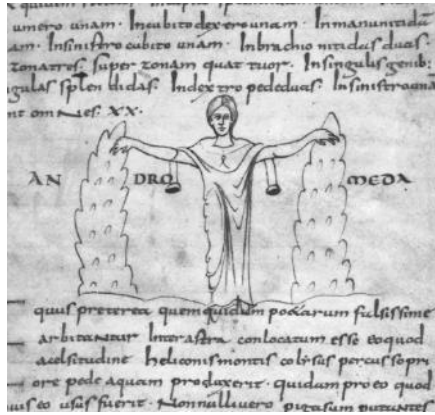 umero unam. Incubito dextero unam. Inmanu nitidā
am. Insinistro cubito unam. Inbrachio nitidas duas.
zonatres. super zonam quat tuor. Insingulis genib:
gulas splendidas. Indextro pede duas. Insinistro unā
nt omnes. XX.
AN DRO MEDA
quus preterea quem quidam poetarum fulsissime
arbitantur Interastra conlocatum esse eoquod
acelsitudine heliconismontis colysus percusso pri
ore pede aquam produxerit. quidam proeo quod
eo usus fuerit. Nonnulli vero pigasum putantes